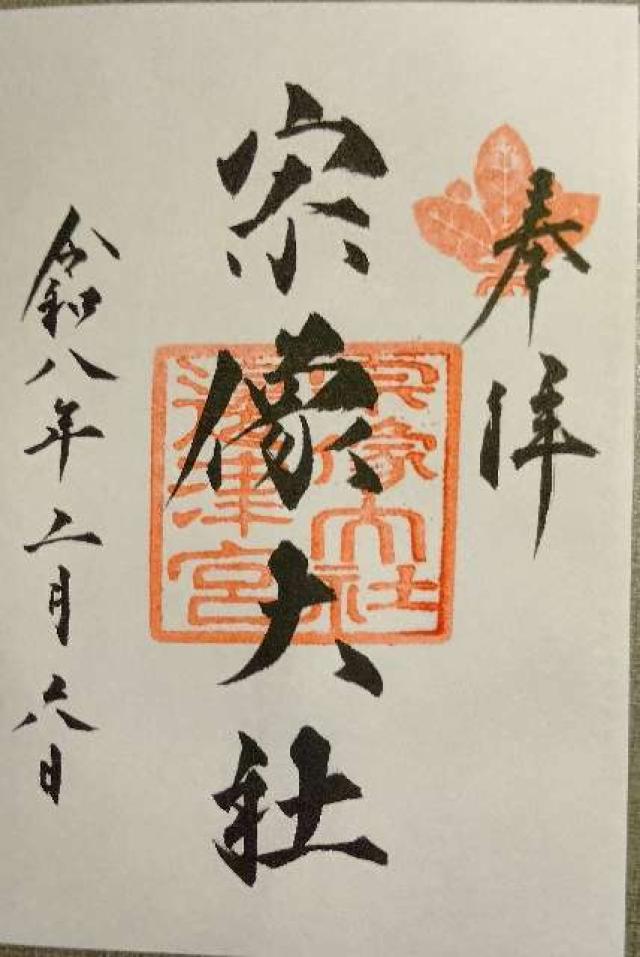 奉拝
宗像大社
宗像大社
邊津宮
令和八年二月六日